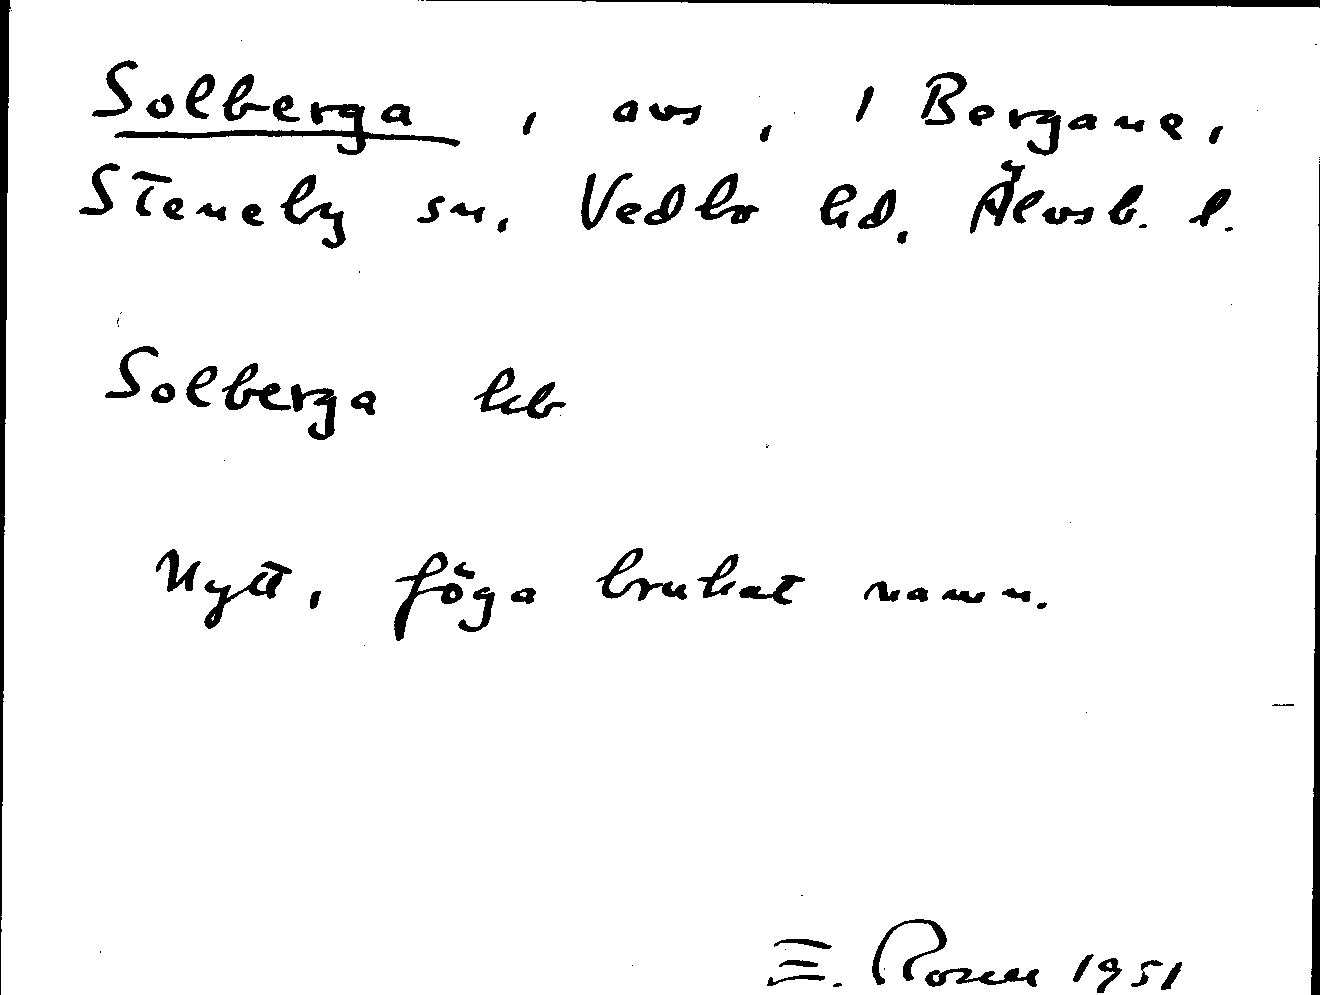 Solberga, avs, 1 Bergane,
Steneby sn, Vedbo hd, Älvsb. l.
Solberga kb
Nytt, föga brukat namn.
E. Rosen 1951